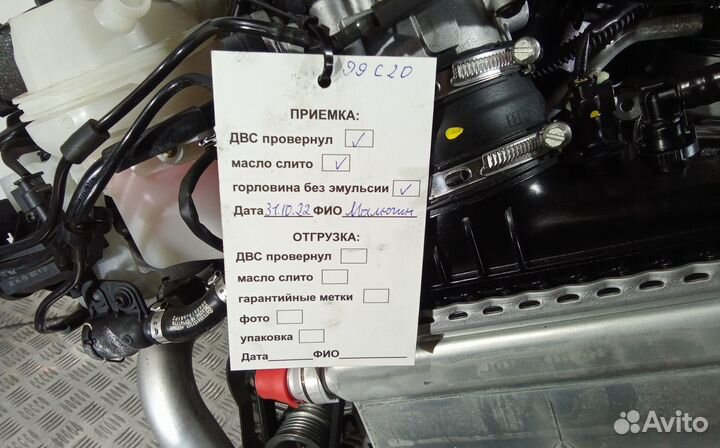 99 C 20
ПРИЕМКА:
ДВС провернул
масло слито
горловина без эмульсии
Дата 31.10.22 ФИО Малюгин
ОТГРУЗКА:
ДВС провернул
масло слито
гарантийные метки
фото
упаковка
Дата ФИО
Avito